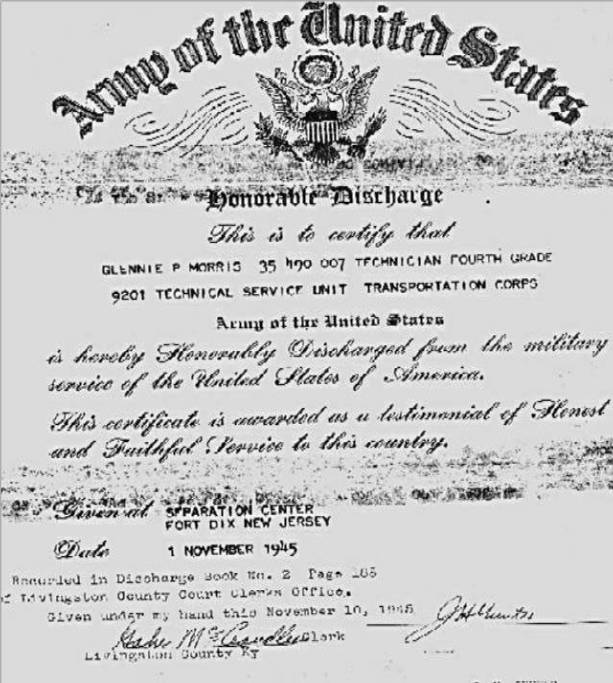 Army of the United States
Honorable Discharge
This is to certify that
GLENNIE P MORRIS 35 490 007 TECHNICIAN FOURTH GRADE
9201 TECHNICAL SERVICE UNIT TRANSPORTATION CORPS
Army of the United States
is hereby Honorably Discharged from the military
service of the United States of America.
This certificate is awarded as a testimonial of Honest
and Faithful Service to this country.
Given at SEPARATION CENTER
FORT DIX NEW JERSEY
Date 1 NOVEMBER 1945
Recorded in Discharge Book No. 2 Page
Livingston County Court Clerks Office.
Given under my hand this November 10, 1945
Clerk
Livingston County Ky